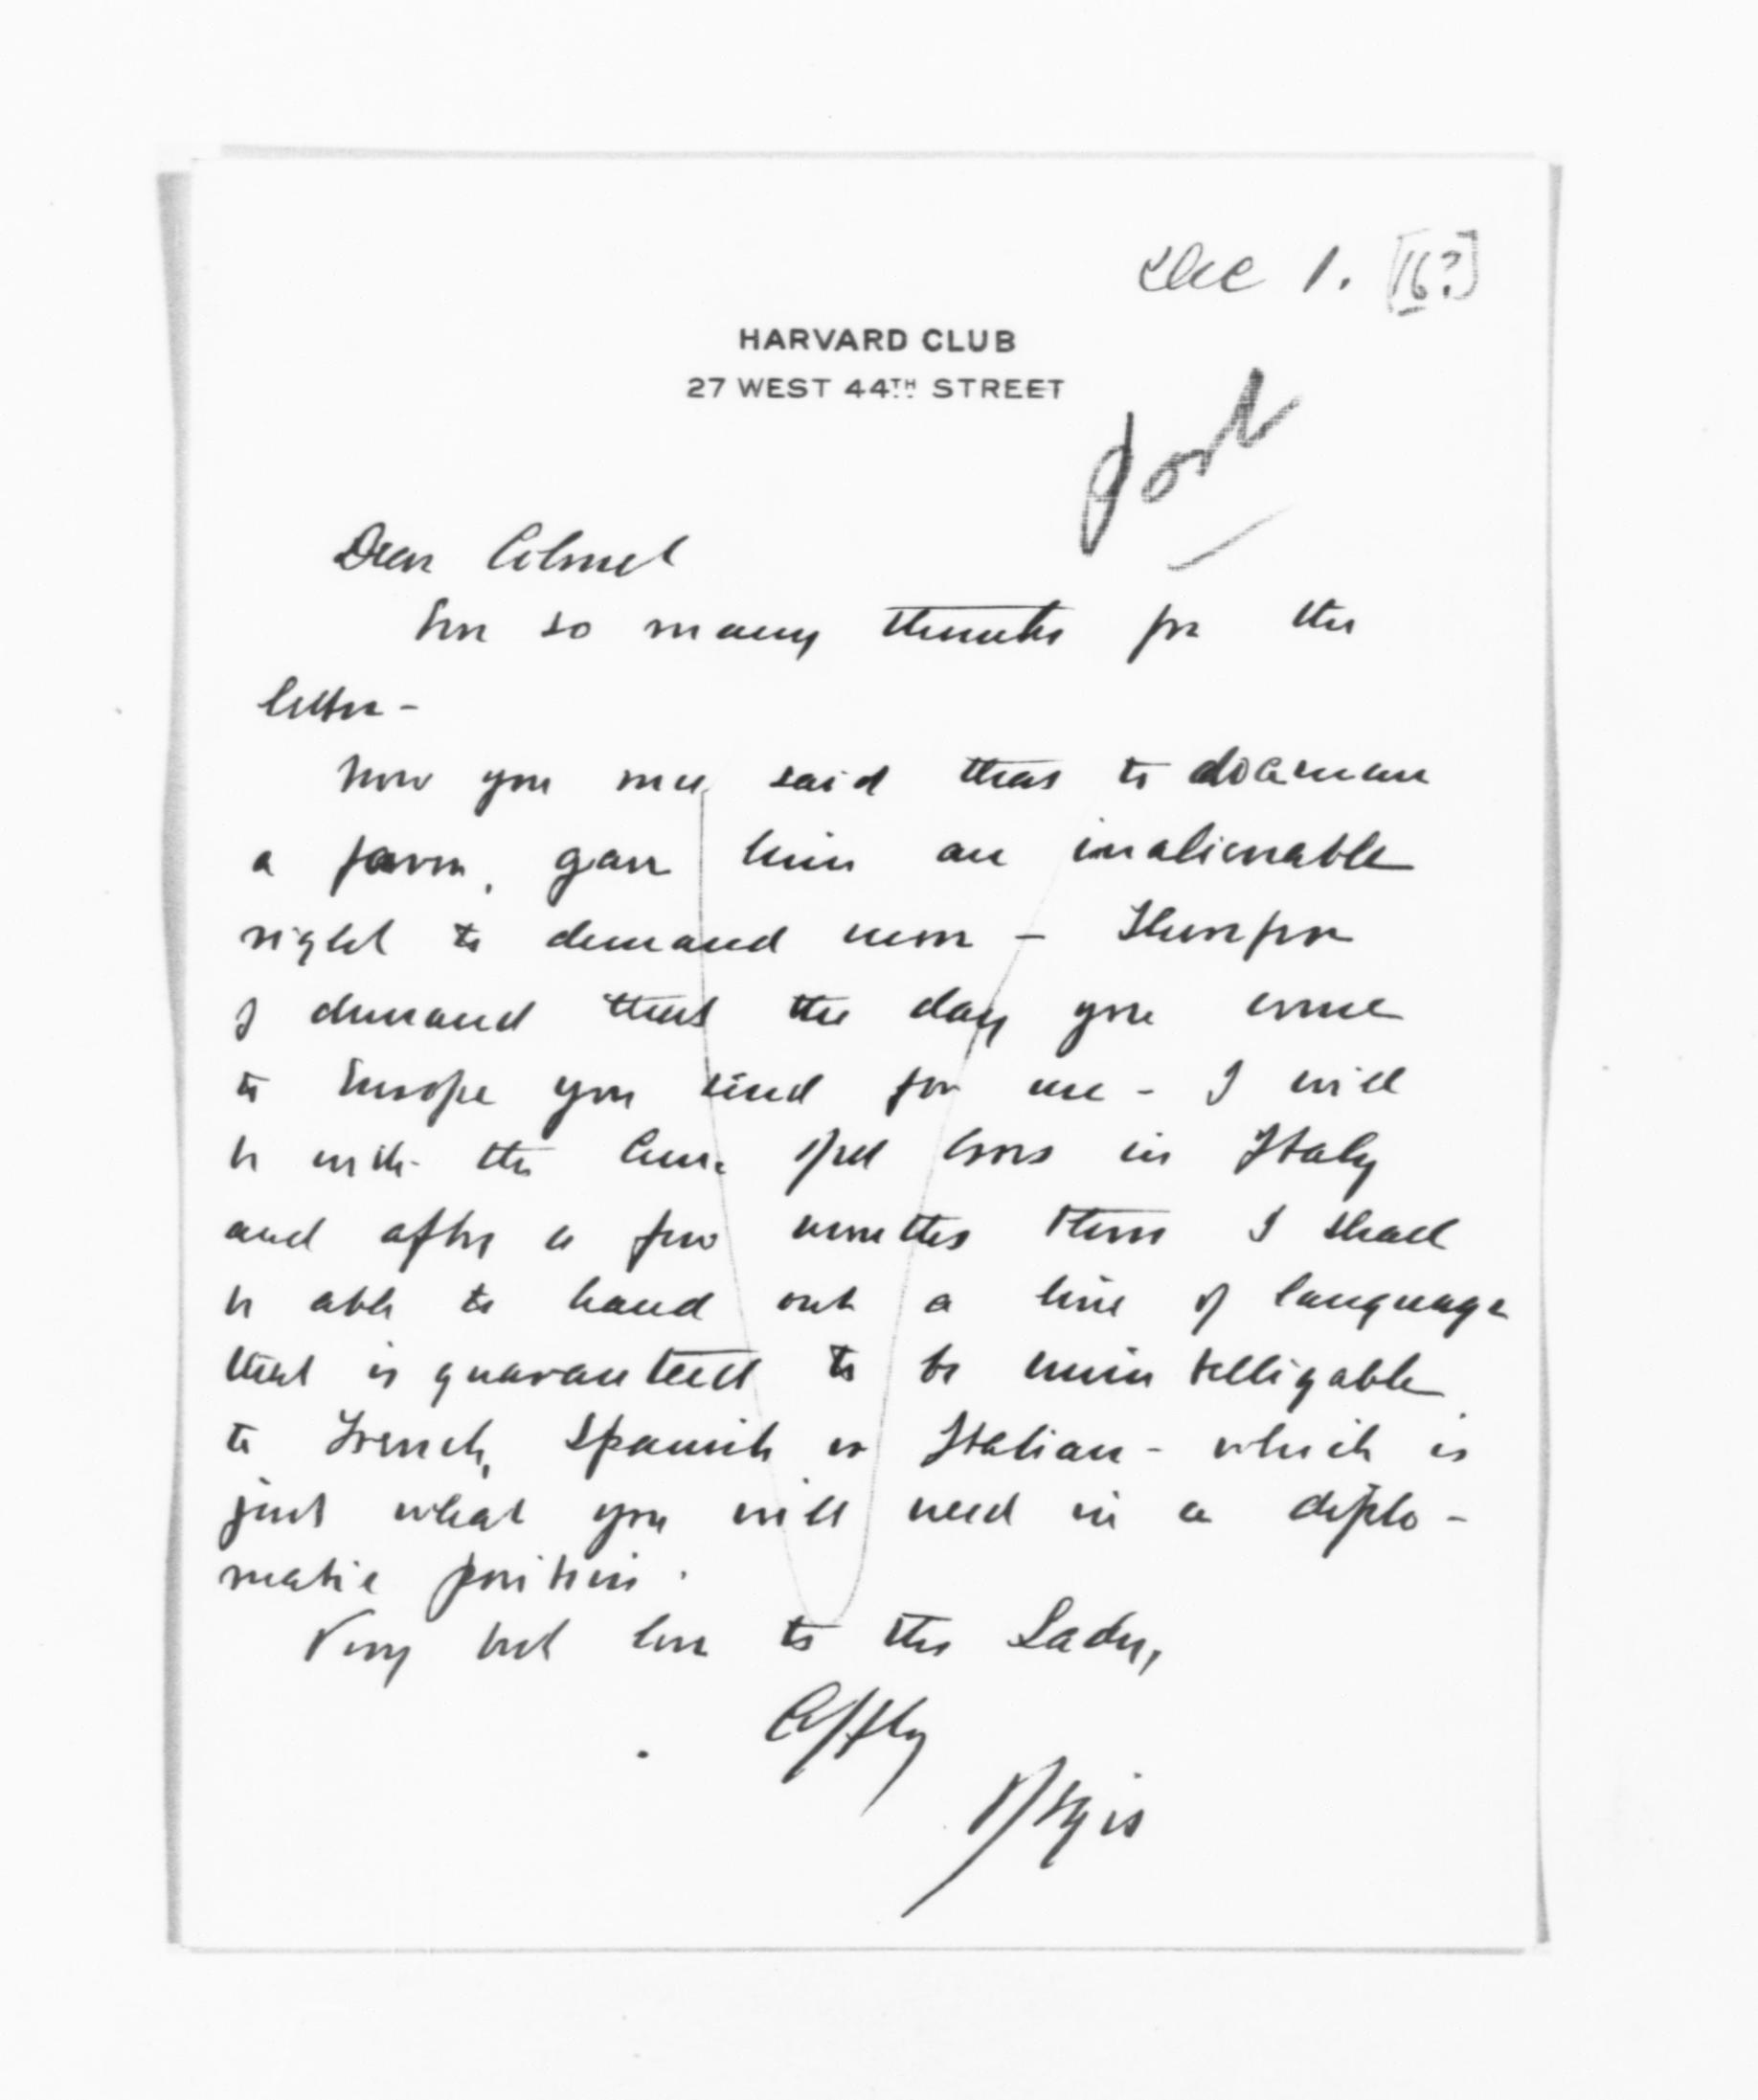 Dec 1. [16?]
HARVARD CLUB
27 WEST 44TH STREET
Dear Colonel
Ever so many thanks for the
letter -
Now you once said that to do a man
a favor, gave him an inalienable
right to demand more - Therefore
I demand that the day you come
to Europe you send for me - I will
be with the Am. Red Cross in Italy
and after a few months there I shall
be able to hand out a line of language
that is guaranteed to be unintelligable
to French, Spanish or Italian - which is
just what you will need in a diplo-
matic position.
Very best love to the Lady,
Affly